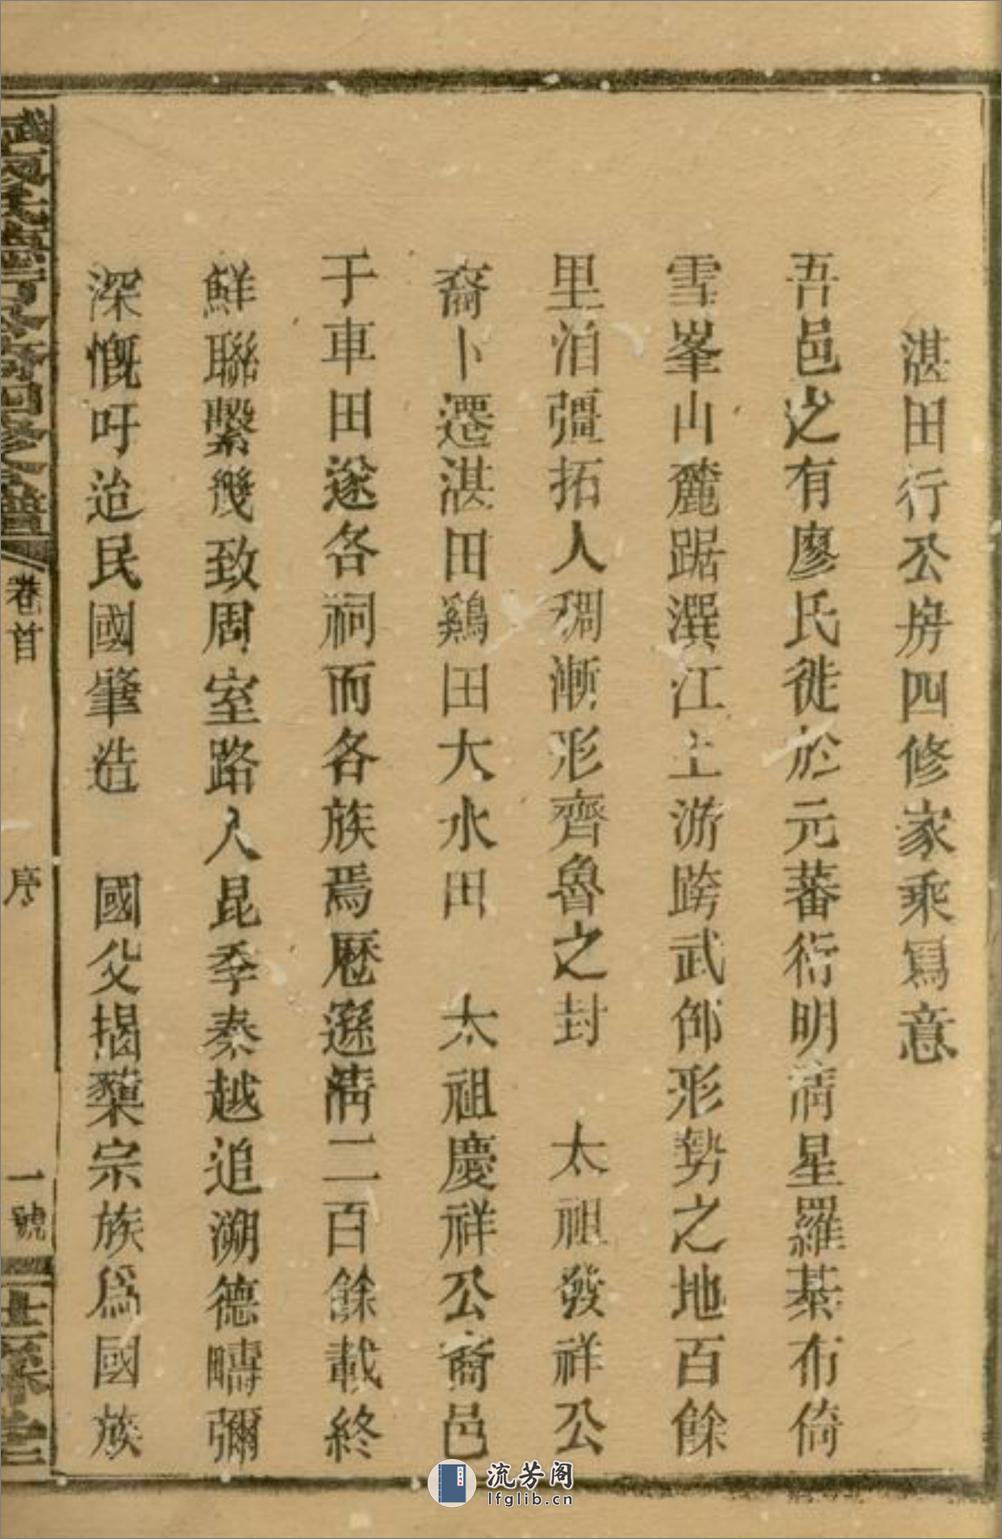 湛田行公房四修家乘寫意
吾邑之有廖氏徙於元蕃衍明清星羅棊布倚
雪峯山麓踞潩江上游跨武邵形勢之地百餘
里洎彊拓人稠漸形齊魯之封 太祖發祥公
裔卜遷湛田鷄田大水田 太祖慶祥公裔邑
于車田遂各祠而各族焉歷遜清二百餘載終
鮮聯繫幾致周室路人昆季秦越追溯德疇彌
深慨吁迨民國肇造 國父揭櫫宗族爲國族
四修
卷首
序
一號
流芳阁
lfglib.cn